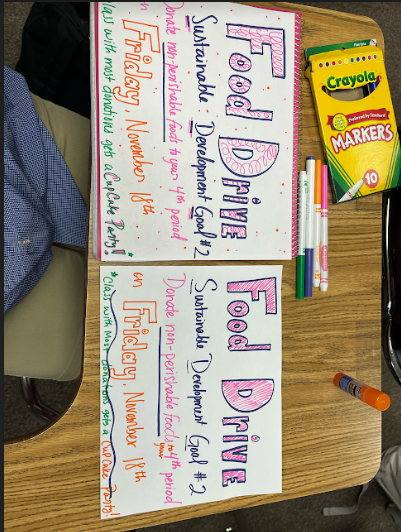 Food Drive
Sustainable: Development Goal #2
Donate non-perishable foods to your 4th period
on
Friday, November 18th
*Class with most donations gets a CupCake Party!*
Food Drive
Sustainable Development Goal #2
Donate non-perishable foods to your 4th period
on Friday, November 18th
*Class with most donations gets a CupCake Party!
Crayola
MARKERS
10